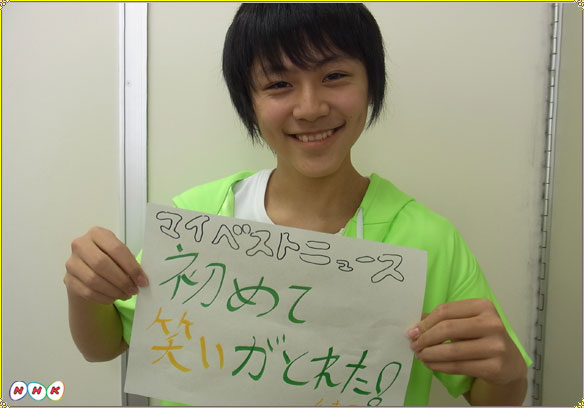 マイベストニュース
初めて
笑いがとれた!
NHK